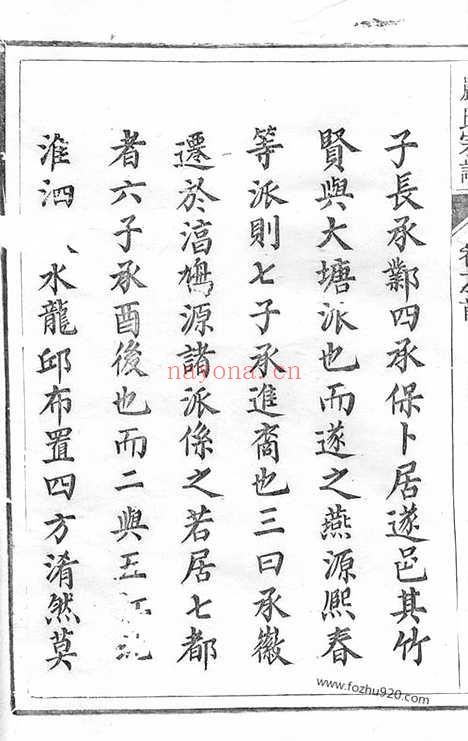 子長承鄴四承保卜居遂邑其竹
賢與大塘派也而遂之燕源熙春
等派則七子承進裔也三曰承徽
遷於湻鳩源諸派係之若居七都
者六子承酉後也而二與五
淮泗水龍邱布置四方淆然莫
nayona.cn
www.fozhu920.com